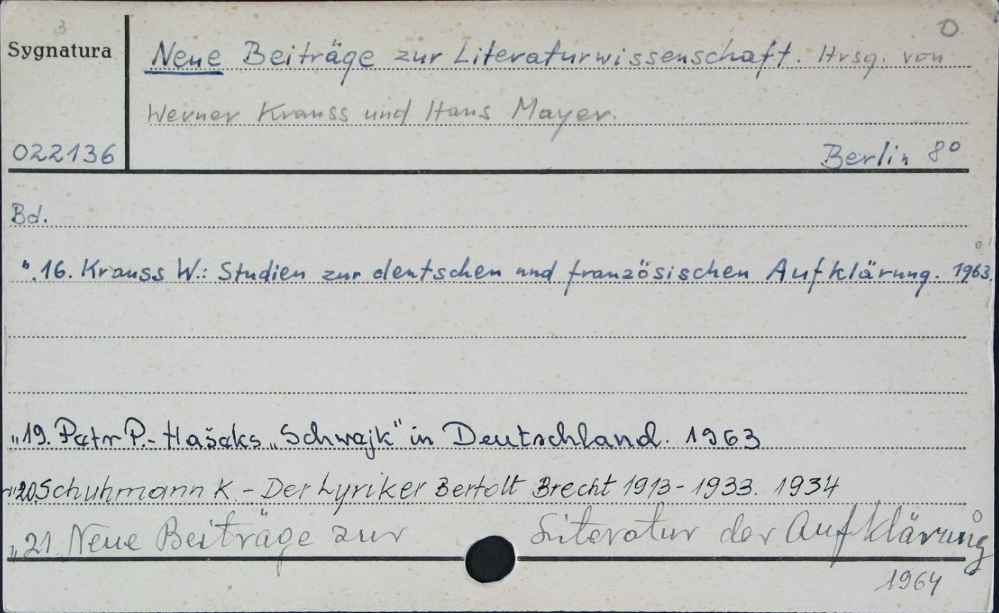 3
O
Sygnatura
Neue Beiträge zur Literaturwissenschaft. Hrsg. von
Werner Krauss und Hans Mayer.
022136
Berlin 8°
Bd.
". 16. Krauss W.: Studien zur deutschen und französischen Aufklärung. 1963.
"19. Petr P.- Hašeks „Schwejk" in Deutschland. 1963
"20. Schuhmann K. - Der Lyriker Bertolt Brecht 1913-1933. 1934
"21. Neue Beiträge zur Literatur der Aufklärung
1964